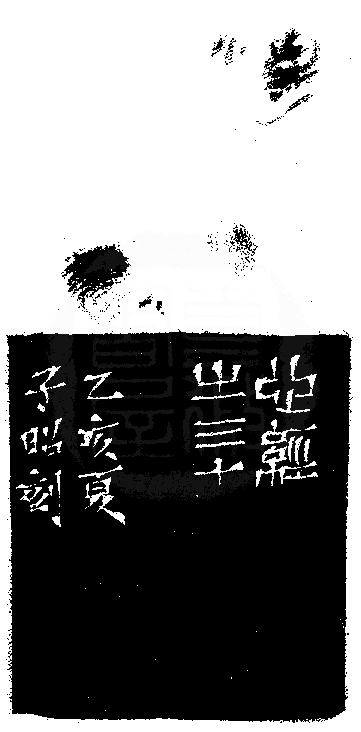 心經
之三十
乙亥夏
子昭刻